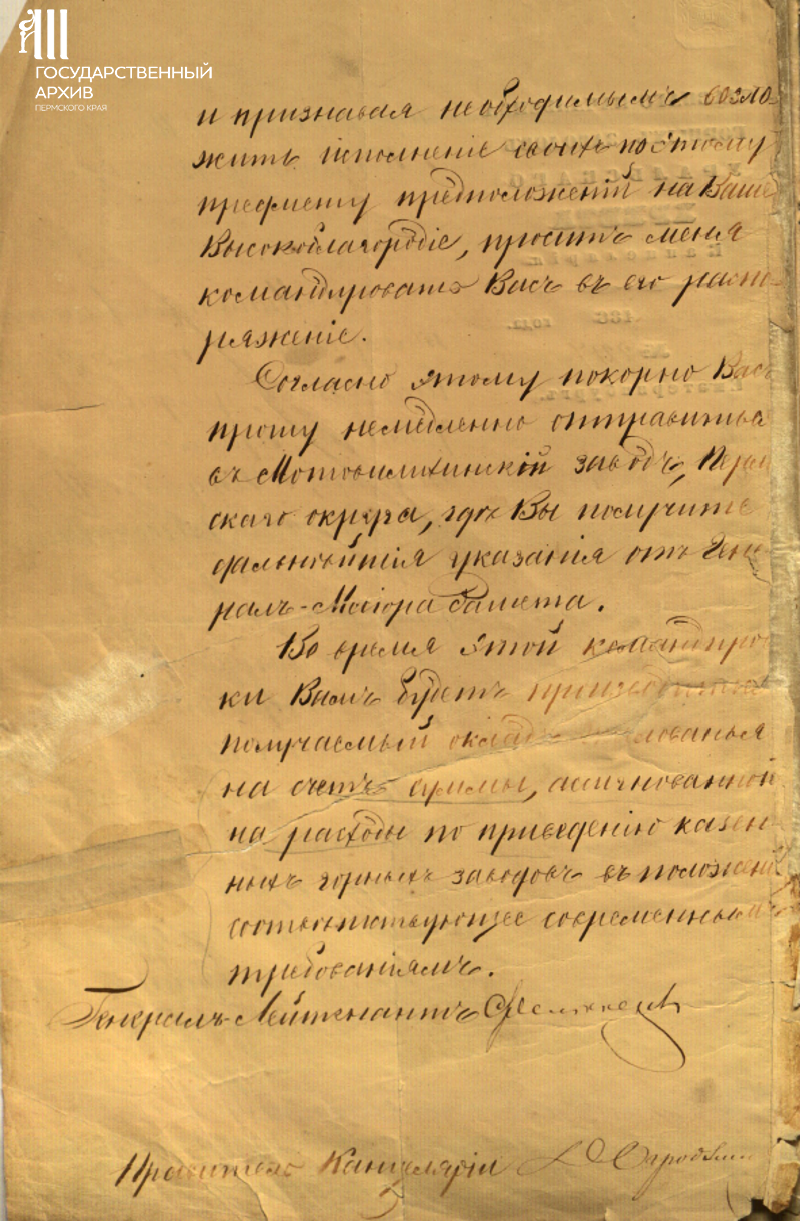 ГОСУДАРСТВЕННЫЙ
АРХИВ
ПЕРМСКОГО КРАЯ
и признавая необходимымъ возло-
жить исполненіе своихъ по этому
предмету предположеній на Ваше
Высокоблагородіе, проситъ меня
командировать Васъ въ его распо-
ряженіе.
Согласно этому покорно Васъ
прошу немедленно отправиться
въ Мотовилихинскій заводъ, Перм
скаго округа, гдѣ Вы получите
дальнѣйшія указанія отъ Гене
ралъ-Маіора
Во время этой командиров
ки Вамъ будетъ производиться
получаемый окладъ жалованья
на счетъ суммы, ассигнованной
на расходы по приведенію казен-
ныхъ горныхъ заводовъ въ положеніе
соотвѣтствующее современнымъ
требованіямъ.
Генералъ-Лейтенантъ
Правитель Канцеляріи